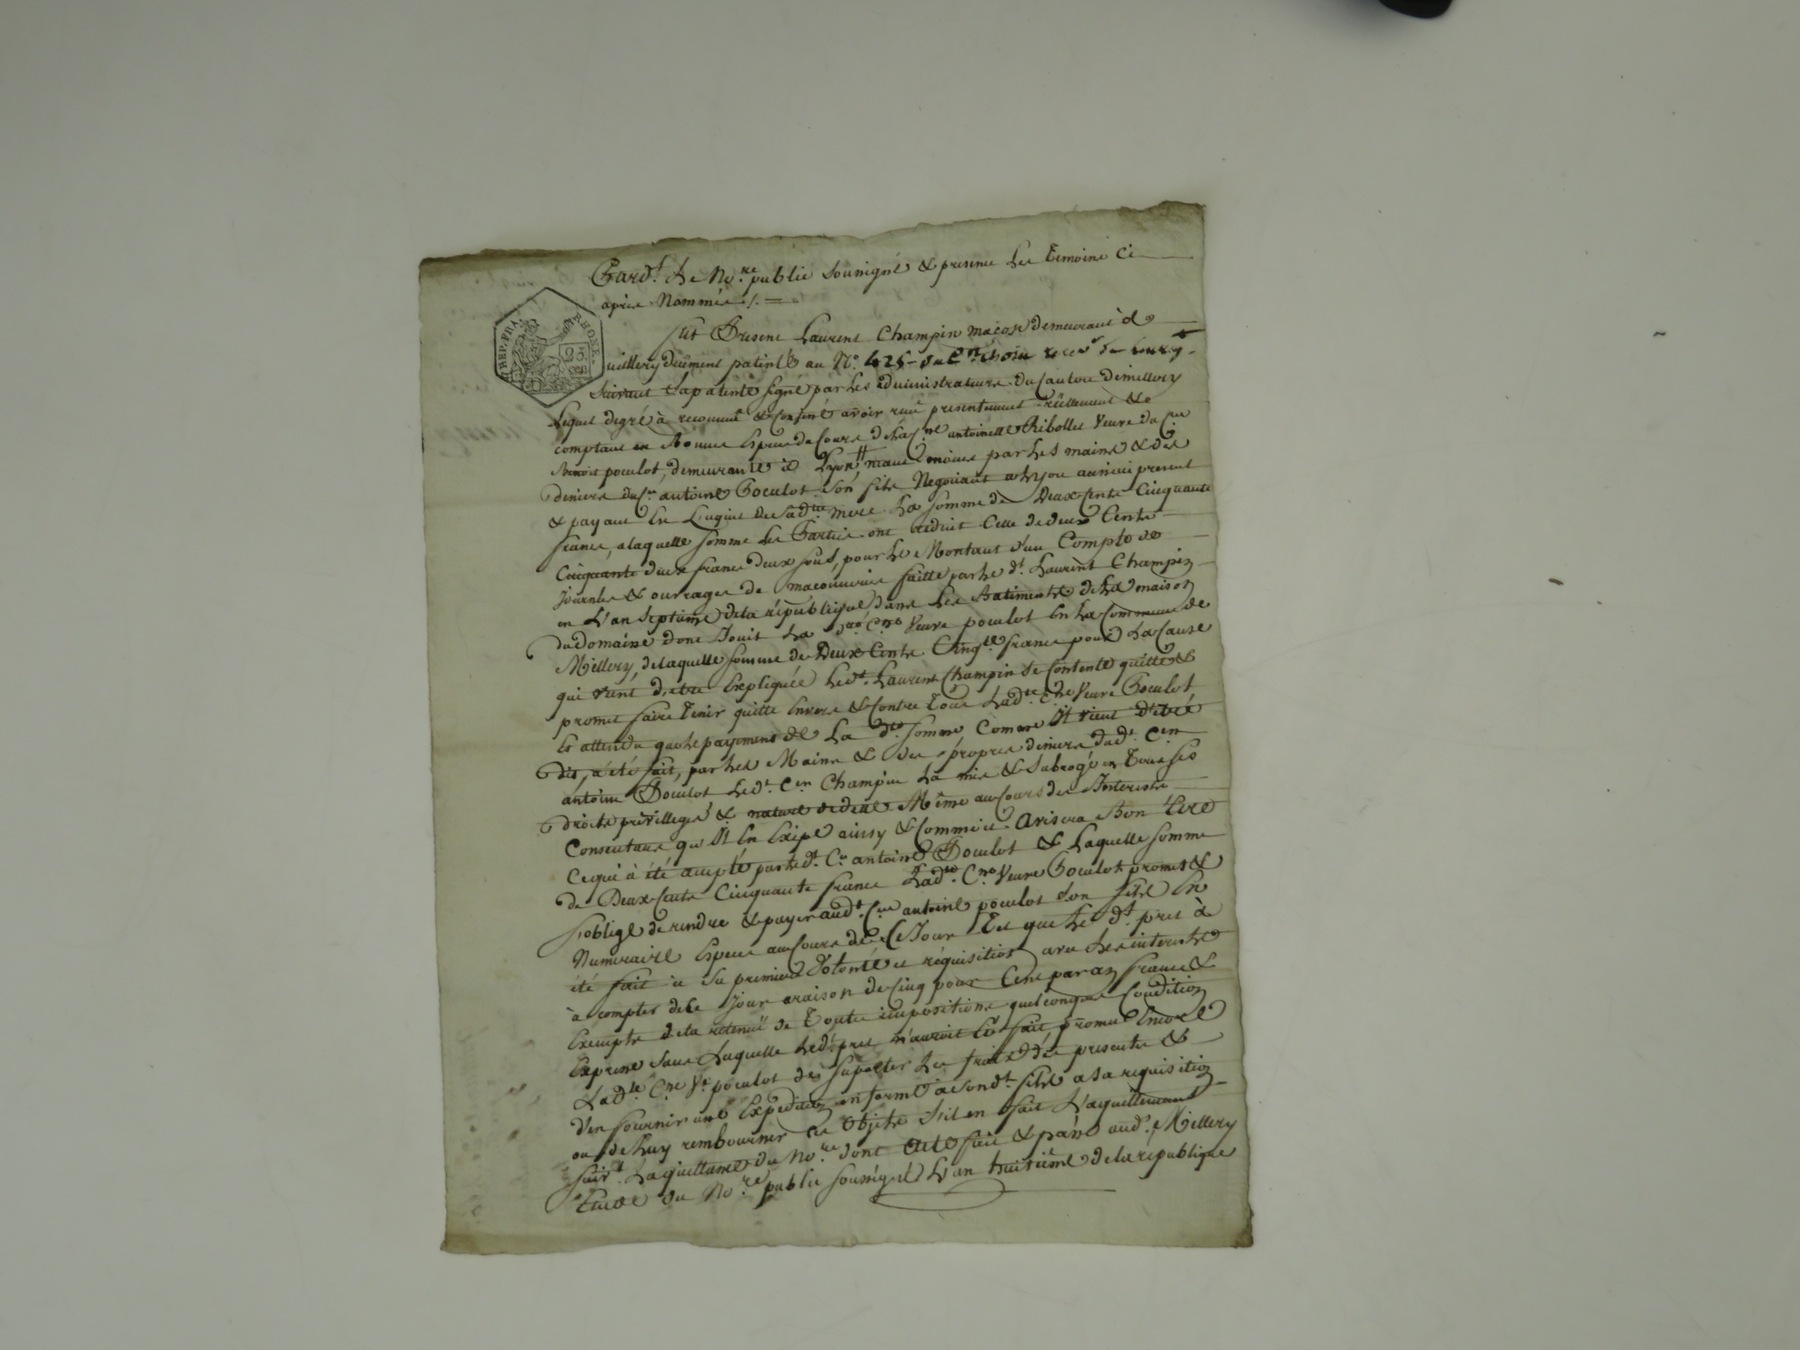 Pard.t le No.re public soussigné & presence des temoins ci
après Nommés /. =
REP. FRA.
RHONE.
fut Present Laurent Champin macon demeurant à
Millery duement patenté au N.o 425
suivant sa patente signé par les administrateurs du Canton de millery
lequel de gré à reconnu & confessé avoir reçu presentement réellement &
comptant en Bonnes Espece du Cours de la C.ne antoinette Ribollet Veuve du C.en
Benoit poculot, demeurante à Lyon par les mains & des
deniers du C.en antoine Poculot Son fils Negotiant a Lyon aussi ici present
& payant En L'aquit de Sad.te mere La Somme de Deux Cents Cinquante
francs, a laquelle somme les Parties ont reduit Celle de deux Cents
Cinquante deux francs deux sous, pour le Montant d'un Compte de
journées & ouvrages de maconnerie faitte par le d.t Laurent Champin
en L'an Septieme de la république dans les Batiments de La maison
du domaine dont Jouit La d.te C.ne Veuve poculot En La Commune de
Millery, de laquelle somme de Deux Cents Cinq.te francs pour La Cause
qui vient d'etre Expliquée Le d.t Laurent Champin Se Contente quitte &
promet faire Tenir quitte Envers & Contre Tous Lad.te C.ne Veuve Poculot,
Et attendu que le payement de La d.te Somme Comme Il vient d'etre
dit, à été fait, par les Mains & des propres deniers dud.t C.en
antoine Poculot Led.t C.en Champin La mis & Subrogé en Tous ses
droits privilleges & nature de dette Même au Cours des Interests
Consentant qu'il En Exipe ainsy & Comme il avisera Bon Etre
Ce qui à été accepté par led.t C.en antoine Poculot & Laquelle Somme
de Deux Cents Cinquante francs Lad.te C.ne Veuve Poculot promet &
s'oblige de rendre & payer aud.t C.en antoine poculot son fils En
Numeraire Espece au Cours de Ce Jour Tel que Le d.t pret à
été fait à sa premiere Volonté et réquisition avec les interests
à compter de Ce Jour a raison de Cinq pour Cent par an francs &
Exempts de la retenüe de Toutes impositions quelconque Condition
Expresse Sans Laquelle Led. pret n'auroit Eté fait, promet Encore
Lad.te C.ne V.e poculot de supporter Les fraix des presentes &
d'en fournir une Expedition en forme a sond.t fils a sa requisition
ou de Luy rembourser Ces objets s'il en fait L'aquittement
suiv.t La quittance du No.re dont acte fait & passé aud. Millery
Etude du No.re public soussigné L'an huitième de la république